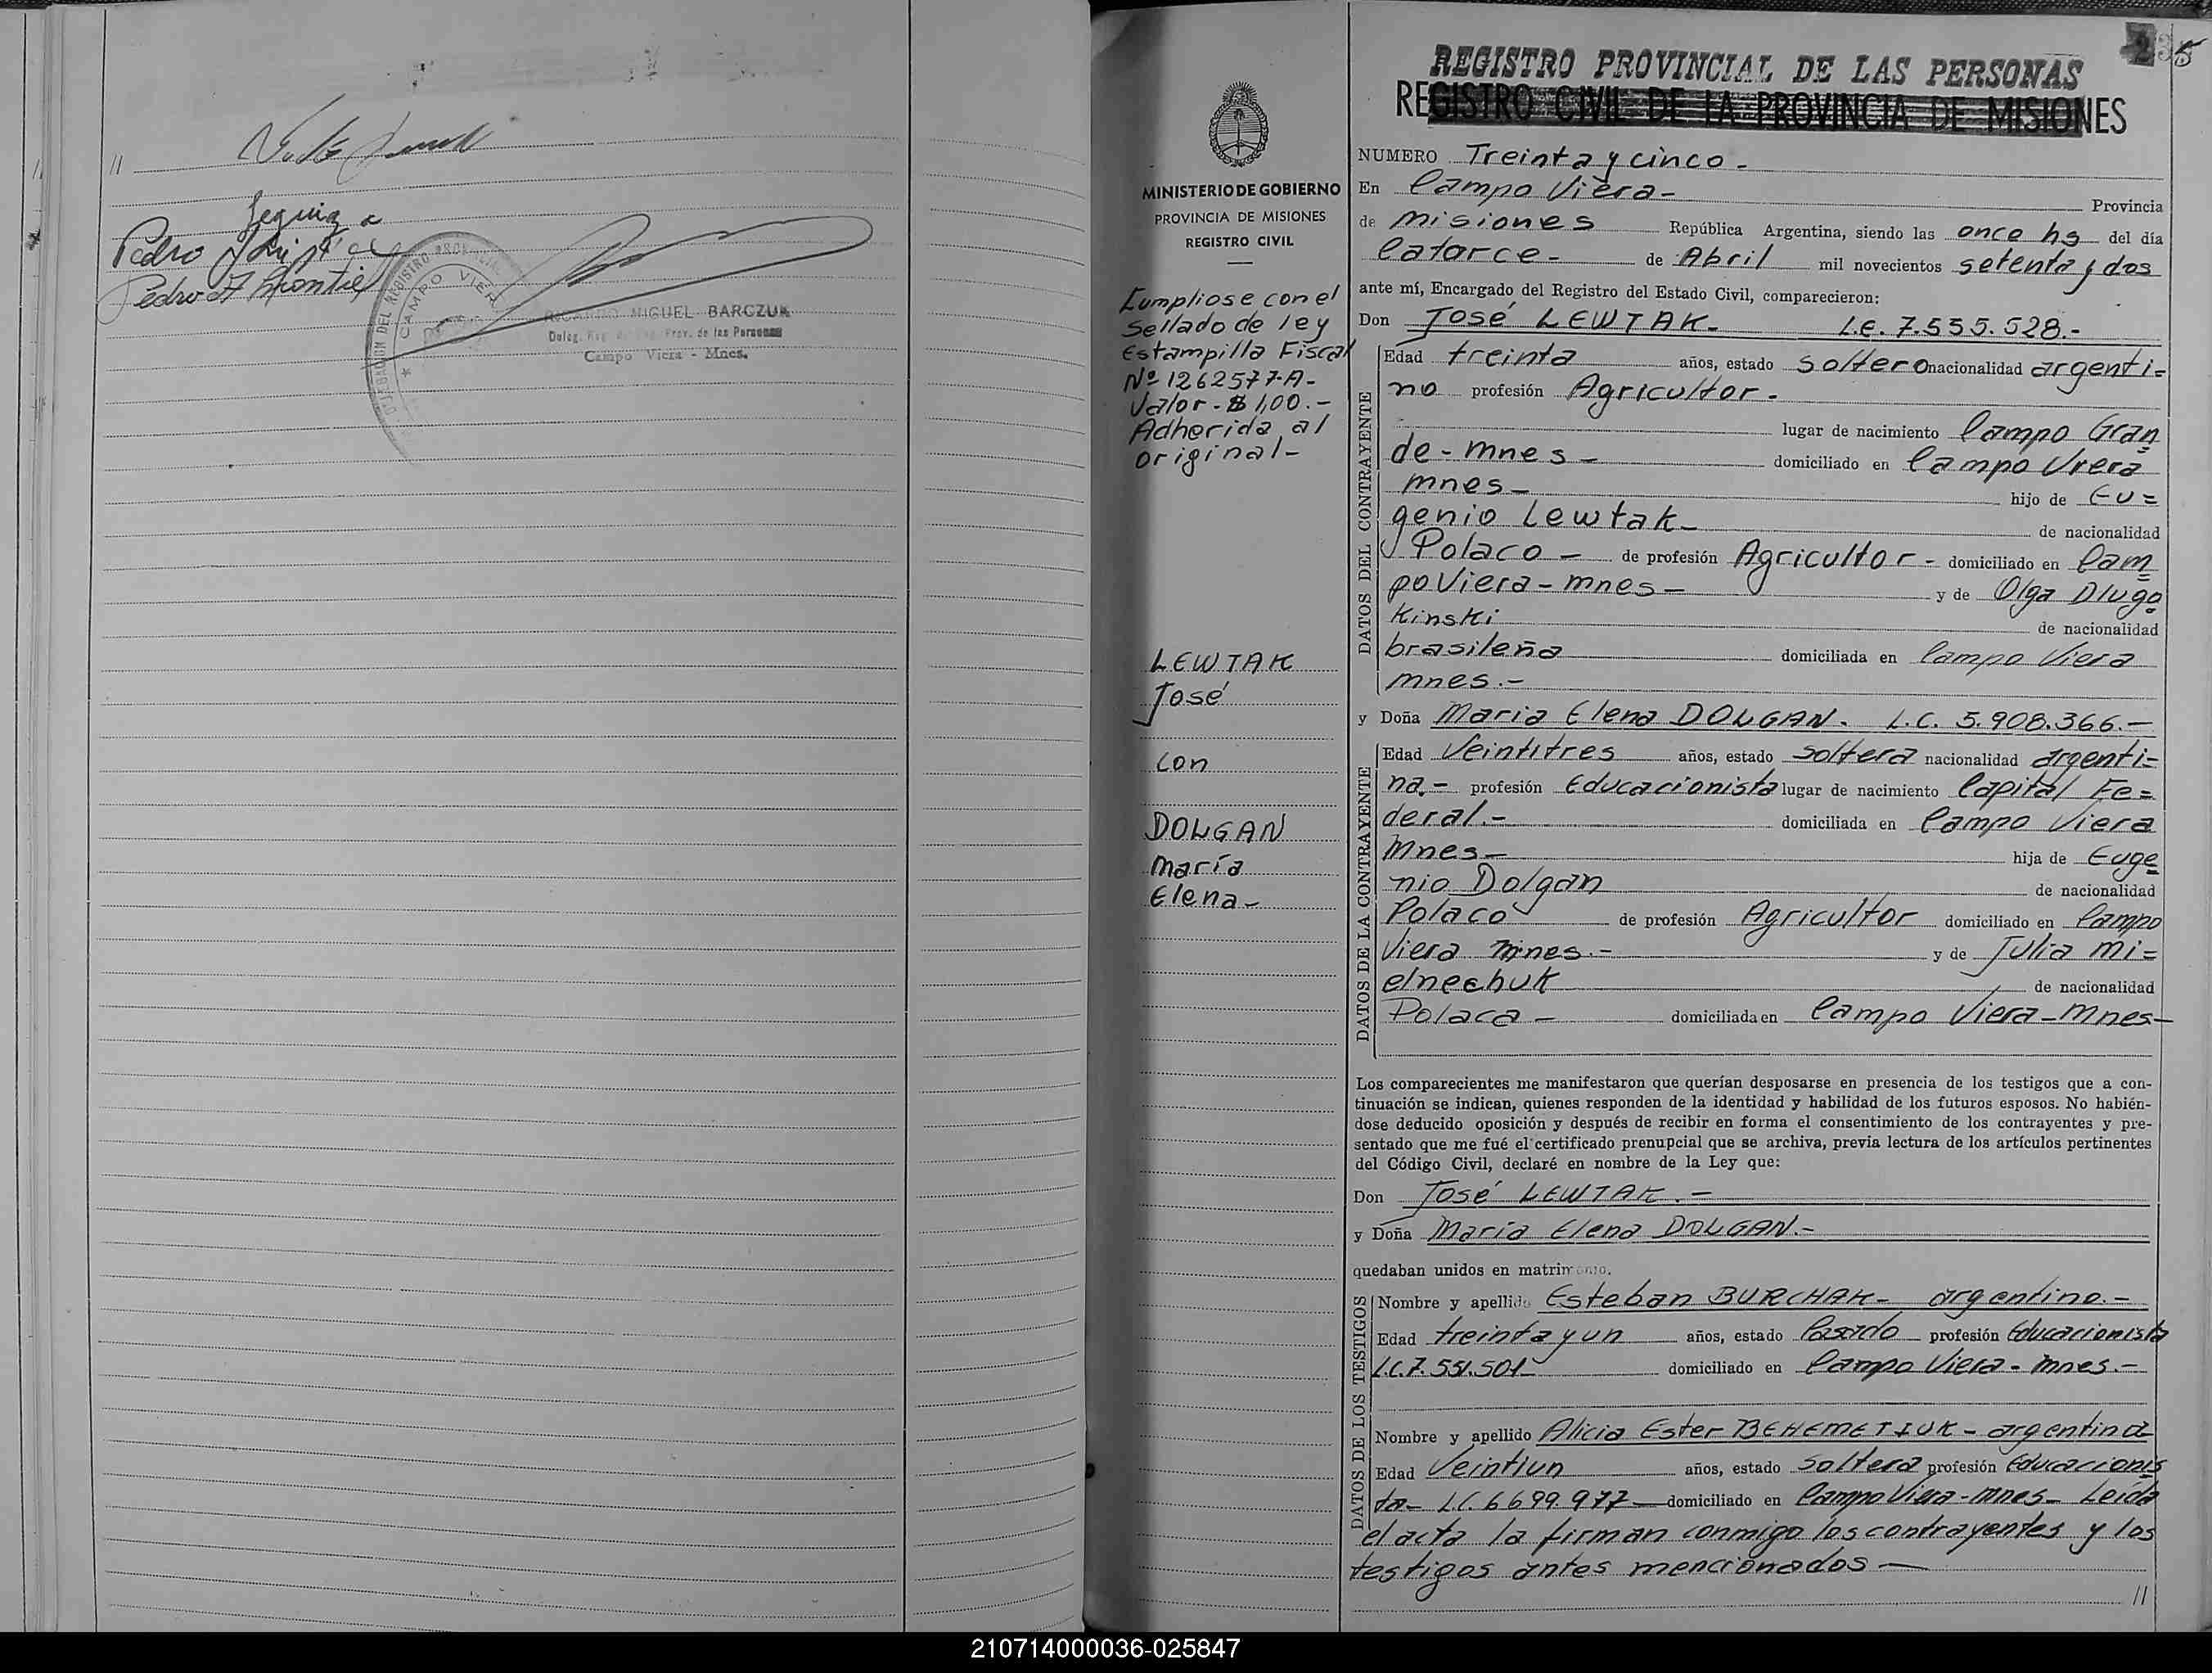 //
Pedro
Pedro A Montiel
DEL REGISTRO PROVINCIAL
* CAMPO VIERA
RICARDO MIGUEL BARCZUK
Deleg. Prov. de las Personas
Campo Viera - Mnes.
REGISTRO PROVINCIAL DE LAS PERSONAS
REGISTRO CIVIL DE LA PROVINCIA DE MISIONES
MINISTERIO DE GOBIERNO
PROVINCIA DE MISIONES
REGISTRO CIVIL
Cumpliose con el
Sellado de ley
Estampilla Fiscal
Nº 1262577-A-
Valor-$ 1,00.-
Adherida al
original-
LEWTAK
José
con
DOLGAN
María
Elena-
NUMERO Treinta y cinco-
En Campo Viera- Provincia
de Misiones República Argentina, siendo las once hs del día
Catorce- de Abril mil novecientos setenta y dos
ante mí, Encargado del Registro del Estado Civil, comparecieron:
Don José LEWTAK- L.E. 7.555.528.-
DATOS DEL CONTRAYENTE
Edad treinta años, estado Soltero nacionalidad argenti=
no profesión Agricultor-
lugar de nacimiento Campo Gran
de-Mnes- domiciliado en Campo Viera
Mnes- hijo de Eu=
genio Lewtak- de nacionalidad
Polaco- de profesión Agricultor- domiciliado en Cam
po Viera-Mnes- y de Olga Dlugo
Kinski de nacionalidad
brasileña domiciliada en Campo Viera
Mnes.-
y Doña Maria Elena DOLGAN. L.C. 5.908.366.-
DATOS DE LA CONTRAYENTE
Edad Veintitres años, estado Soltera nacionalidad argenti=
na.- profesión Educacionista lugar de nacimiento Capital Fe=
deral.- domiciliada en Campo Viera
Mnes- hija de Euge
nio Dolgan de nacionalidad
Polaco de profesión Agricultor domiciliado en Campo
Viera Mnes.- y de Julia Mi=
elnechuk de nacionalidad
Polaca- domiciliada en Campo Viera-Mnes-
Los comparecientes me manifestaron que querían desposarse en presencia de los testigos que a con-
tinuación se indican, quienes responden de la identidad y habilidad de los futuros esposos. No habién-
dose deducido oposición y después de recibir en forma el consentimiento de los contrayentes y pre-
sentado que me fué el certificado prenupcial que se archiva, previa lectura de los artículos pertinentes
del Código Civil, declaré en nombre de la Ley que:
Don José LEWTAK.-
y Doña María Elena DOLGAN.-
quedaban unidos en matrimonio.
DATOS DE LOS TESTIGOS
Nombre y apellido Esteban BURCHAK- argentino.-
Edad treinta y un años, estado Casado profesión Educacionista
L.C. 7.551.501- domiciliado en Campo Viera-Mnes.-
Nombre y apellido Alicia Ester BEHEMETIUK- argentina
Edad Veintiun años, estado Soltera profesión Educacionis
ta- L.C. 6699.977- domiciliado en Campo Viera-Mnes- Leída
el acta la firman conmigo los contrayentes y los
testigos antes mencionados-
//
210714000036-025847